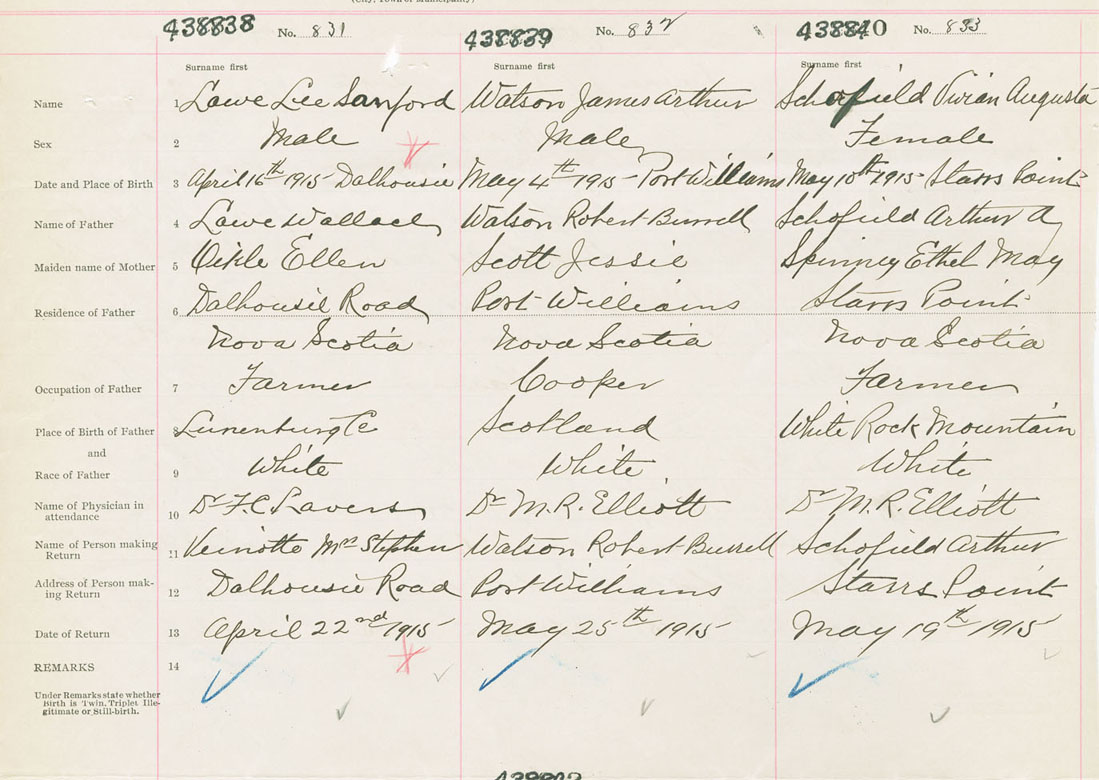 (City, Town or Municipality)
438838 No. 831 438839 No. 832 438840 No. 833
Surname first Surname first Surname first
Name 1 Lowe Lee Sanford Watson James Arthur Schofield Vivian Augusta
Sex 2 Male Male Female
Date and Place of Birth 3 April 16th 1915 Dalhousie May 4th 1915 - Port Williams May 10th 1915 - Starrs Point
Name of Father 4 Lowe Wallace Watson Robert Burrell Schofield Arthur A
Maiden name of Mother 5 Oikle Ellen Scott Jessie Spinney Ethel May
Residence of Father 6 Dalhousie Road Port Williams Starrs Point
Nova Scotia Nova Scotia Nova Scotia
Occupation of Father 7 Farmer Cooper Farmer
Place of Birth of Father 8 Lunenburg Co Scotland White Rock Mountain
and
Race of Father 9 White White White
Name of Physician in
attendance 10 Dr F.C. Lavers Dr M.R. Elliott Dr M.R. Elliott
Name of Person making
Return 11 Veinotte Mrs Stephen Watson Robert Burrell Schofield Arthur
Address of Person mak-
ing Return 12 Dalhousie Road Port Williams Starrs Point
Date of Return 13 April 22nd 1915 May 25th 1915 May 19th 1915
REMARKS 14
Under Remarks state whether
Birth is Twin, Triplet Ille-
gitimate or Still-birth.